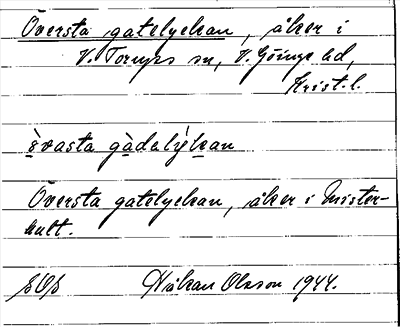 Översta gatelyckan, åker i
V. Torups sn, V. Göinge hd,
Krist. l.
svasta gàdelýkan
Översta gatelyckan, åker i Mister-
hult.
Håkan Olsson 1944.